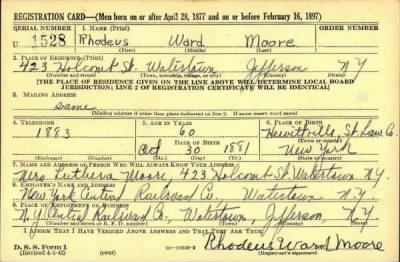 REGISTRATION CARD—(Men born on or after April 28, 1877 and on or before February 16, 1897)
SERIAL NUMBER 1. NAME (Print) ORDER NUMBER
U 1528 Rhodeus Ward Moore
(First) (Middle) (Last)
2. PLACE OF RESIDENCE (Print)
423 Holcomb St. Watertown Jefferson N.Y.
(Number and street) (Town, township, village, or city) (County) (State)
[THE PLACE OF RESIDENCE GIVEN ON THE LINE ABOVE WILL DETERMINE LOCAL BOARD
JURISDICTION; LINE 2 OF REGISTRATION CERTIFICATE WILL BE IDENTICAL]
3. MAILING ADDRESS
same
[Mailing address if other than place indicated on line 2. If same insert word same]
4. TELEPHONE 5. AGE IN YEARS 6. PLACE OF BIRTH
1883 60 Hewittville, St. Law. Co.
DATE OF BIRTH (Town or county)
Oct 30 1881 New York
(Exchange) (Number) (Mo.) (Day) (Yr.) (State or country)
7. NAME AND ADDRESS OF PERSON WHO WILL ALWAYS KNOW YOUR ADDRESS
Mrs Luthera Moore, 423 Holcomb St. Watertown N.Y.
8. EMPLOYER'S NAME AND ADDRESS
New York Central Railroad Co., Watertown N.Y.
9. PLACE OF EMPLOYMENT OR BUSINESS
N.Y. Central Railroad Co., Watertown, Jefferson, N.Y.
(Number and street or R. F. D. number) (Town) (County) (State)
I AFFIRM THAT I HAVE VERIFIED ABOVE ANSWERS AND THAT THEY ARE TRUE.
D. S. S. Form 1
(Revised 4-1-42) (over)
Rhodeus Ward Moore